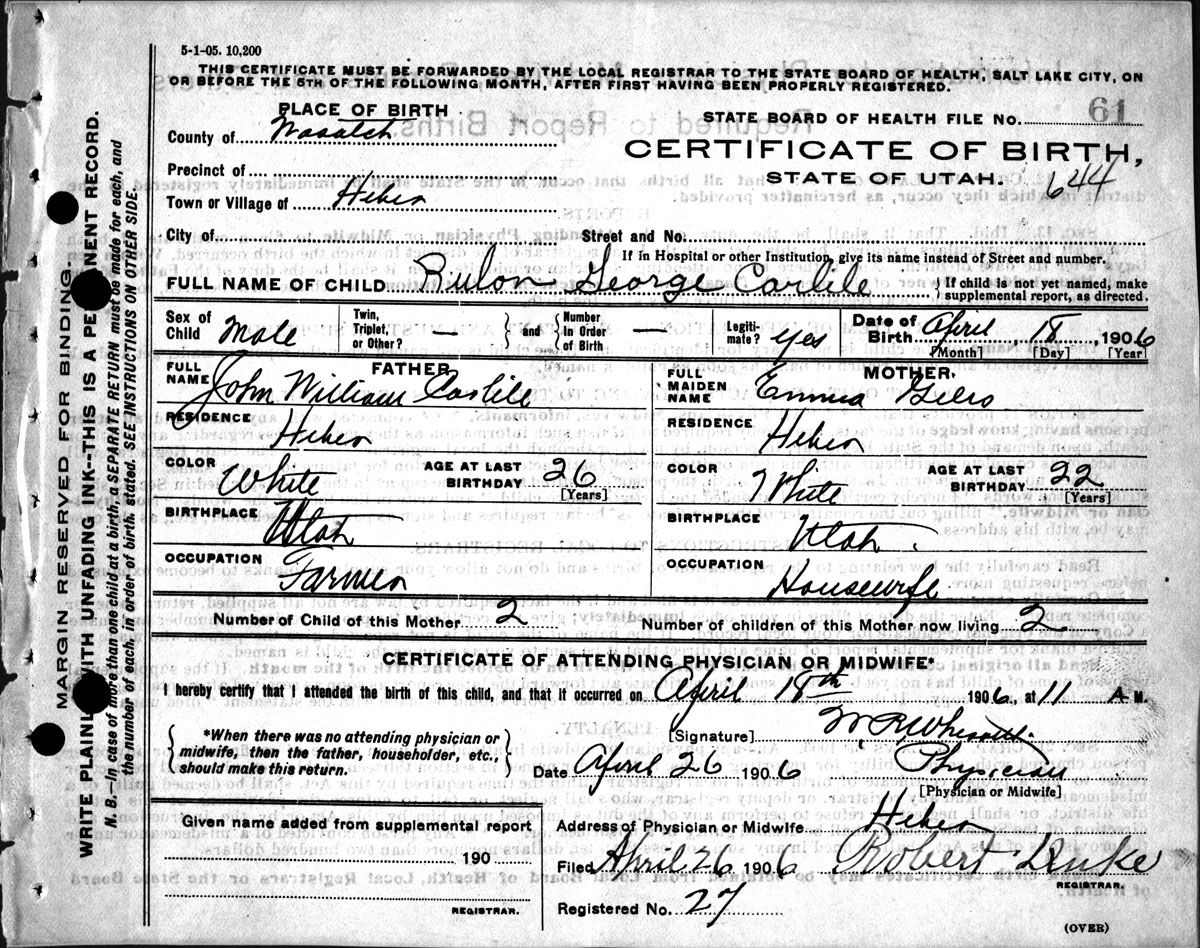 5-1-05. 10,200
THIS CERTIFICATE MUST BE FORWARDED BY THE LOCAL REGISTRAR TO THE STATE BOARD OF HEALTH, SALT LAKE CITY, ON
OR BEFORE THE 5TH OF THE FOLLOWING MONTH, AFTER FIRST HAVING BEEN PROPERLY REGISTERED.
PLACE OF BIRTH
STATE BOARD OF HEALTH FILE NO. 61
County of Wasatch
CERTIFICATE OF BIRTH,
Precinct of
STATE OF UTAH. 644
Town or Village of Heber
City of Street and No.
If in Hospital or other Institution, give its name instead of Street and number.
FULL NAME OF CHILD Rulon George Carlile } If child is not yet named, make supplemental report, as directed.
Sex of Child Male Twin, Triplet, or Other? — } and { Number in Order of Birth — Legitimate? yes Date of Birth April 18, 1906
[Month] [Day] [Year]
FATHER MOTHER
FULL NAME John William Carlile FULL MAIDEN NAME Emma Giles
RESIDENCE Heber RESIDENCE Heber
COLOR White AGE AT LAST BIRTHDAY 26 [Years] COLOR White AGE AT LAST BIRTHDAY 22 [Years]
BIRTHPLACE Utah BIRTHPLACE Utah.
OCCUPATION Farmer OCCUPATION Housewife
Number of Child of this Mother 2 Number of children of this Mother now living 2
CERTIFICATE OF ATTENDING PHYSICIAN OR MIDWIFE*
I hereby certify that I attended the birth of this child, and that it occurred on April 18th 1906, at 11 A M.
{ *When there was no attending physician or midwife, then the father, householder, etc., should make this return. }
[Signature] W R
Date April 26 1906 Physician
[Physician or Midwife]
Given name added from supplemental report
190
REGISTRAR.
Address of Physician or Midwife Heber
Filed April 26 1906 Robert Duke
REGISTRAR.
Registered No. 27
(OVER)
MARGIN RESERVED FOR BINDING.
WRITE PLAINLY WITH UNFADING INK--THIS IS A PERMANENT RECORD.
N. B.—In case of more than one child at a birth, a SEPARATE RETURN must be made for each, and
the number of each, in order of birth, stated. SEE INSTRUCTIONS ON OTHER SIDE.